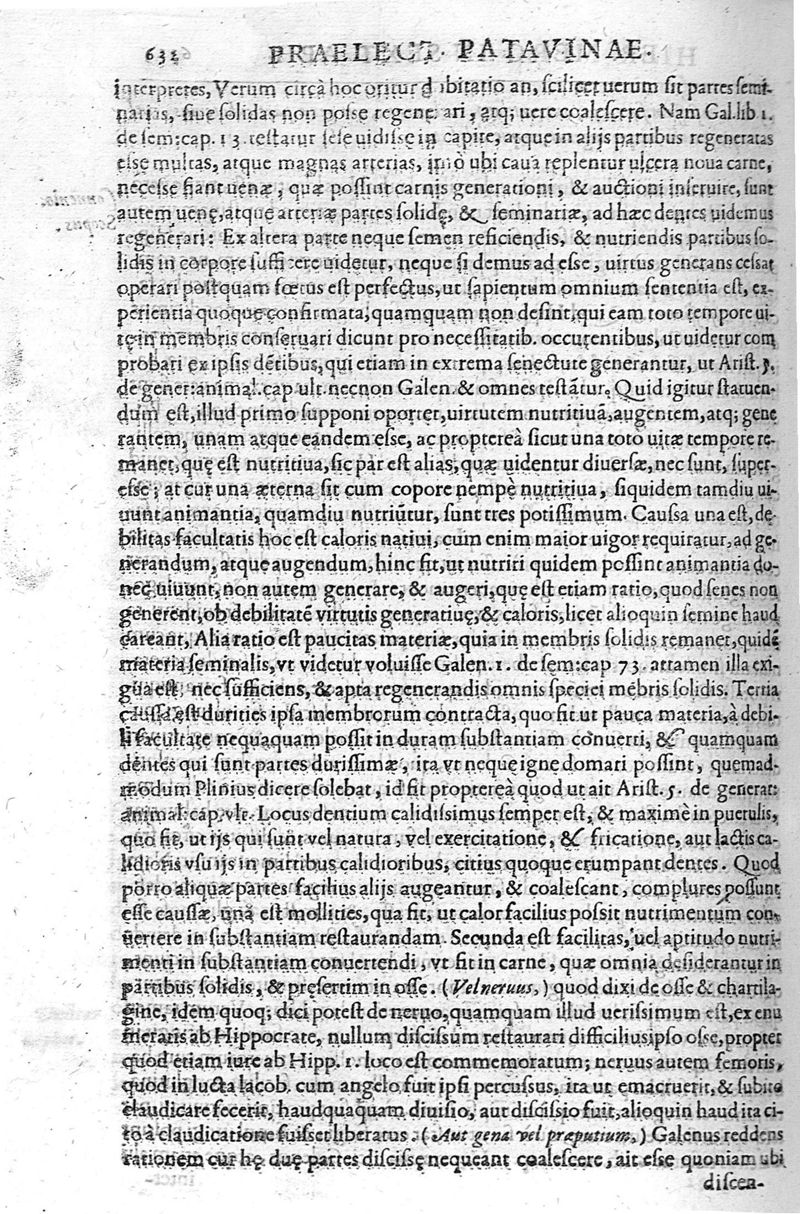 632 PRAELECT. PATAVINAE.
interpretes, Verum circà hoc oritur dubitatio an, scilicet uerum sit partes semi-
narias, siue solidas non posse regenerari, atq; uere coalescere. Nam Gal.lib 1.
de sem:cap. 13. testatur sese uidisse in capite, atque in alijs partibus regeneratas
esse multas, atque magnas arterias, imò ubi caua replentur ulcera noua carne,
necesse fiant uenæ, quæ possint carnis generationi, & auctioni inseruire, sunt
autem uenę, atque arteriæ partes solidę, & seminariæ, ad hæc dentes uidemus
regenerari: Ex altera parte neque semen reficiendis, & nutriendis partibus so-
lidis in corpore sufficere uidetur, neque si demus adesse, uirtus generans cessat
operari postquam fœtus est perfectus, ut sapientum omnium sententia est, ex-
perientia quoque confirmata, quamquam non desint, qui eam toto tempore ui-
tę in membris conseruari dicunt pro necessitatib. occurentibus, ut uidetur com
probari ex ipsis dẽtibus, qui etiam in extrema senectute generantur, ut Arist. 5.
de gener:animal.cap ult. necnon Galen. & omnes testãtur. Quid igitur statuen-
dum est, illud primo supponi oportet, uirtutem nutritiuã, augentem, atq; gene
rantem, unam atque eandem esse, ac proptereà sicut una toto uitæ tempore re-
manet, quę est nutritiua, sic par est alias, quæ uidentur diuersæ, nec sunt, super-
esse; at cur una æterna sit cum copore nempè nutritiua, siquidem tamdiu ui-
uunt animantia, quamdiu nutriũtur, sunt tres potissimum. Caussa una est, de-
bilitas facultatis hoc est caloris natiui, cum enim maior uigor requiratur, ad ge-
nerandum, atque augendum, hinc fit, ut nutriri quidem possint animantia do-
nec uiuunt, non autem generare, & augeri, quę est etiam ratio, quod senes non
generent, ob debilitatẽ virtutis generatiuę, & caloris, licet alioquin semine haud
careant, Alia ratio est paucitas materiæ, quia in membris solidis remanet, quidẽ
materia seminalis, vt videtur voluisse Galen. 1. de sem:cap 73. attamen illa exi-
gua est, nec sufficiens, & apta regenerandis omnis speciei mẽbris solidis. Tertia
caussa est durities ipsa membrorum contracta, quo fit ut pauca materia, à debi-
li facultate nequaquam possit in duram substantiam cõuerti, & quamquam
dentes qui sunt partes durissimæ, ita vt neque igne domari possint, quemad-
modum Plinius dicere solebat, id fit proptereà quod ut ait Arist. 5. de generat:
animal:cap. vlt. Locus dentium calidissimus semper est, & maximè in puerulis,
quo fit, ut ijs qui sunt vel natura, vel exercitatione, & fricatione, aut lactis ca-
lidioris vsu ijs in partibus calidioribus, citius quoque erumpant dentes. Quod
porro aliquæ partes facilius alijs augeantur, & coalescant, complures possunt
esse caussæ, unã est mollities, qua fit, ut calor facilius possit nutrimentum con-
uertere in substantiam restaurandam. Secunda est facilitas, uel aptitudo nutri-
menti in substantiam conuertendi, vt fit in carne, quæ omnia desiderantur in
partibus solidis, & presertim in osse. (Vel neruus,) quod dixi de osse & chartila-
gine, idem quoq; dici potest de neruo, quamquam illud uerissimum est, ex enu
meratis ab Hippocrate, nullum discissum restaurari difficilius, ipso osse, propter
quod etiam iure ab Hipp. 1. loco est commemoratum; neruus autem femoris,
quod in lucta Iacob. cum angelo fuit ipsi percussus, ita ut emacruerit, & subito
claudicare fecerit, haudquaquam diuisio, aut discissio fuit, alioquin haud ita ci-
to à claudicatione fuisset liberatus. (Aut gena vel præputium,) Galenus reddens
rationem cur hę duę partes discissę nequeant coalescere, ait esse quoniam ubi
discen-